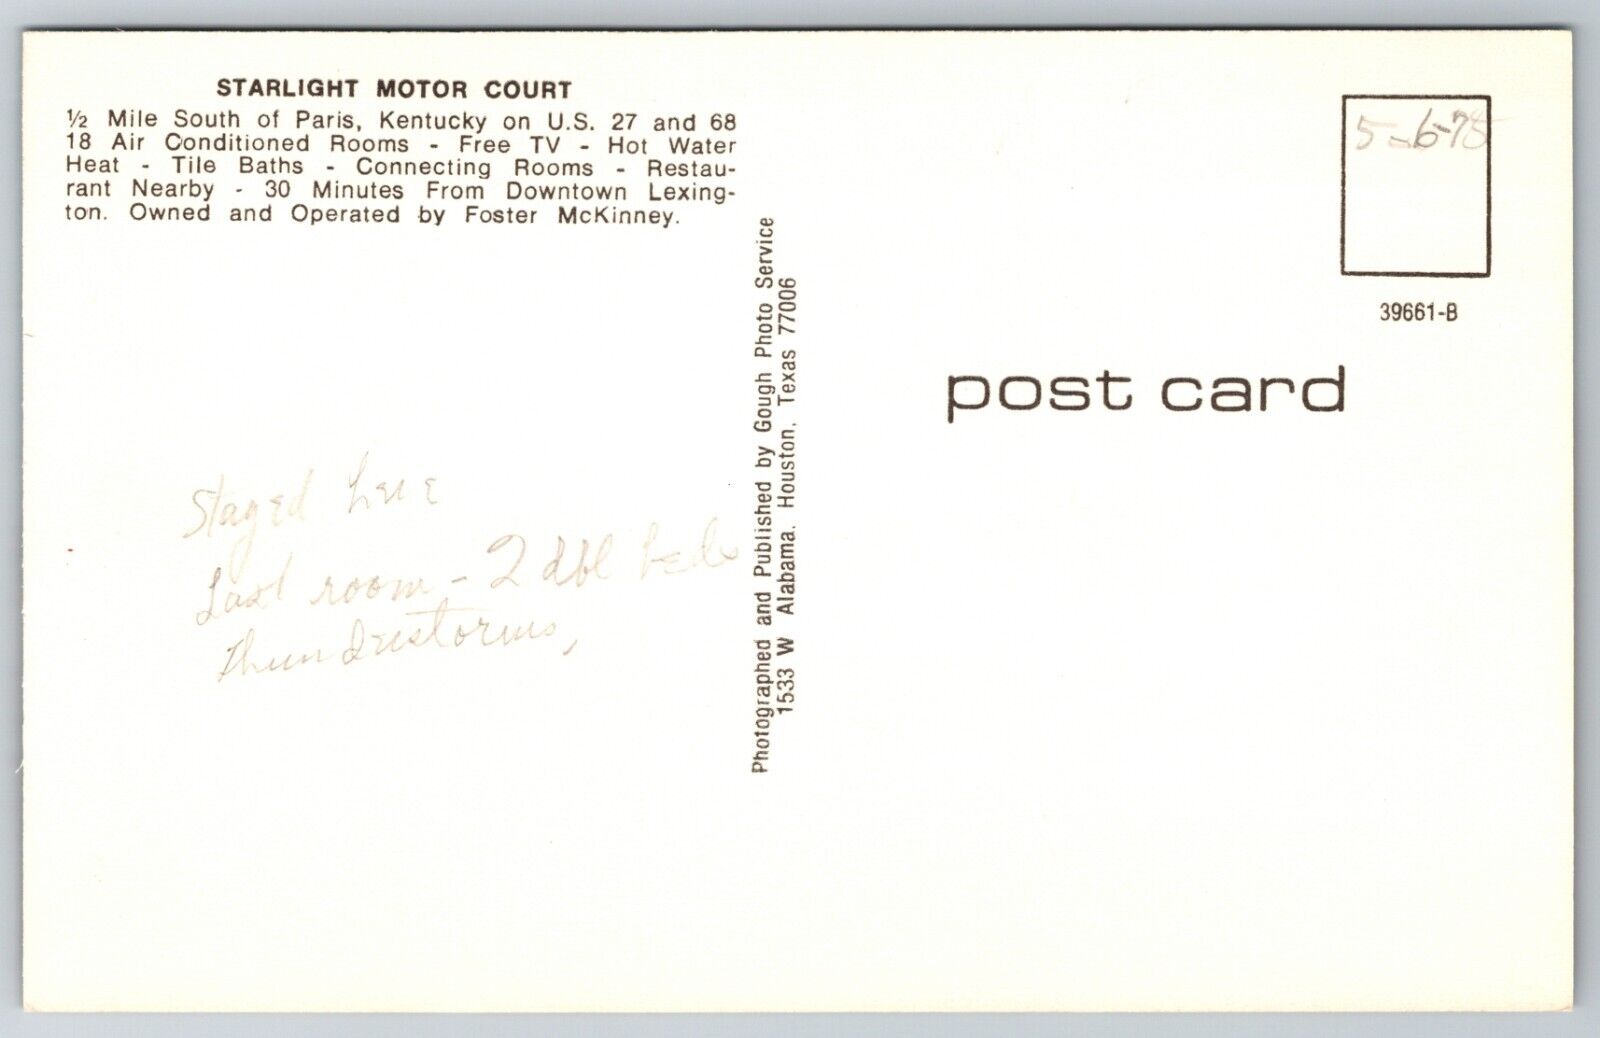 STARLIGHT MOTOR COURT
½ Mile South of Paris, Kentucky on U.S. 27 and 68
18 Air Conditioned Rooms - Free TV - Hot Water
Heat - Tile Baths - Connecting Rooms - Restau-
rant Nearby - 30 Minutes From Downtown Lexing-
ton. Owned and Operated by Foster McKinney.
Stayed here
Last room - 2 dbl beds
thunderstorms,
Photographed and Published by Gough Photo Service
1533 W Alabama. Houston, Texas 77006
5-6-78
39661-B
post card